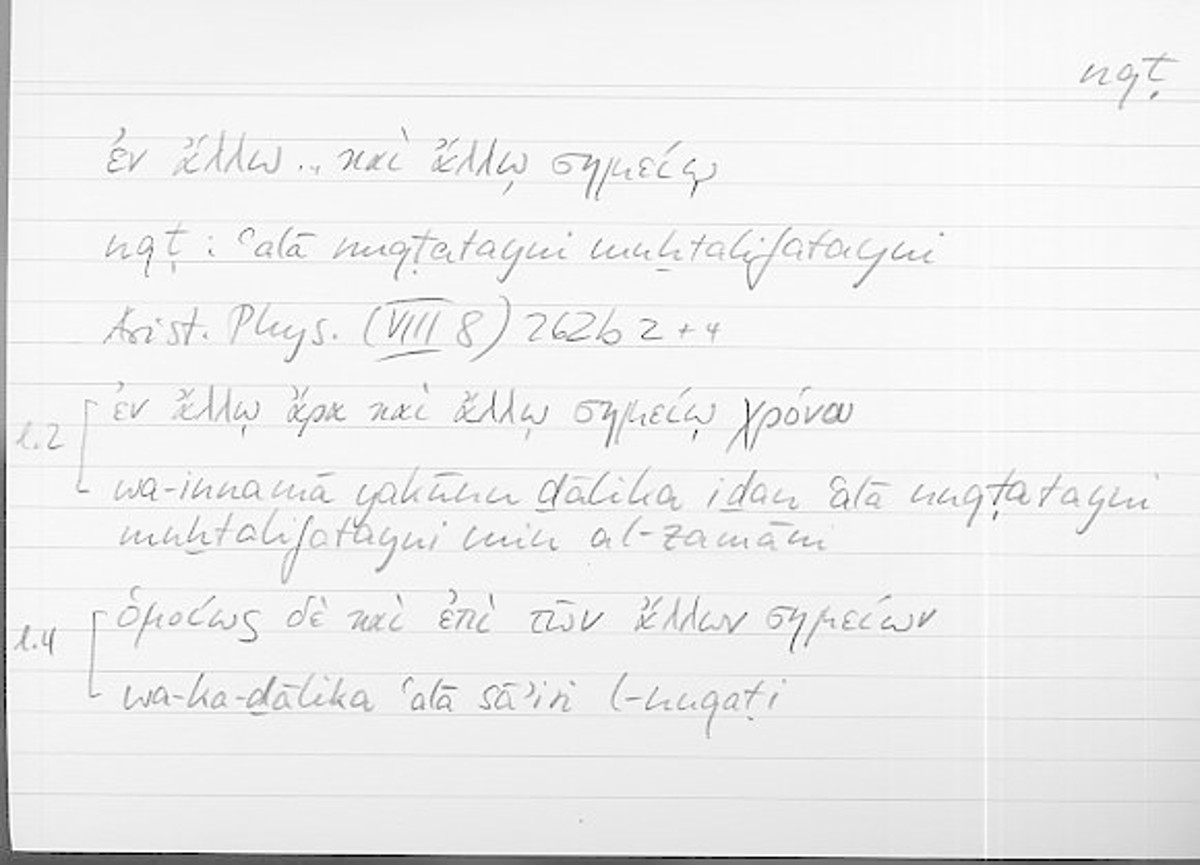 nqṭ
ἐν ἄλλω .. καὶ ἄλλῳ σημείῳ
nqṭ : ʿalā nuqṭatayni muḫtalifatayni
Arist. Phys. (VIII 8) 262b 2 + 4
ἐν ἄλλῳ ἄρα καὶ ἄλλῳ σημείῳ χρόνου
l.2
wa-innamā yakūnu ḏālika iḏan ʿalā nuqṭatayni
muḫtalifatayni min al-zamāni
ὁμοίως δὲ καὶ ἐπὶ τῶν ἄλλων σημείων
l.4
wa-ka-ḏālika ʿalā sāʾiri l-nuqaṭi